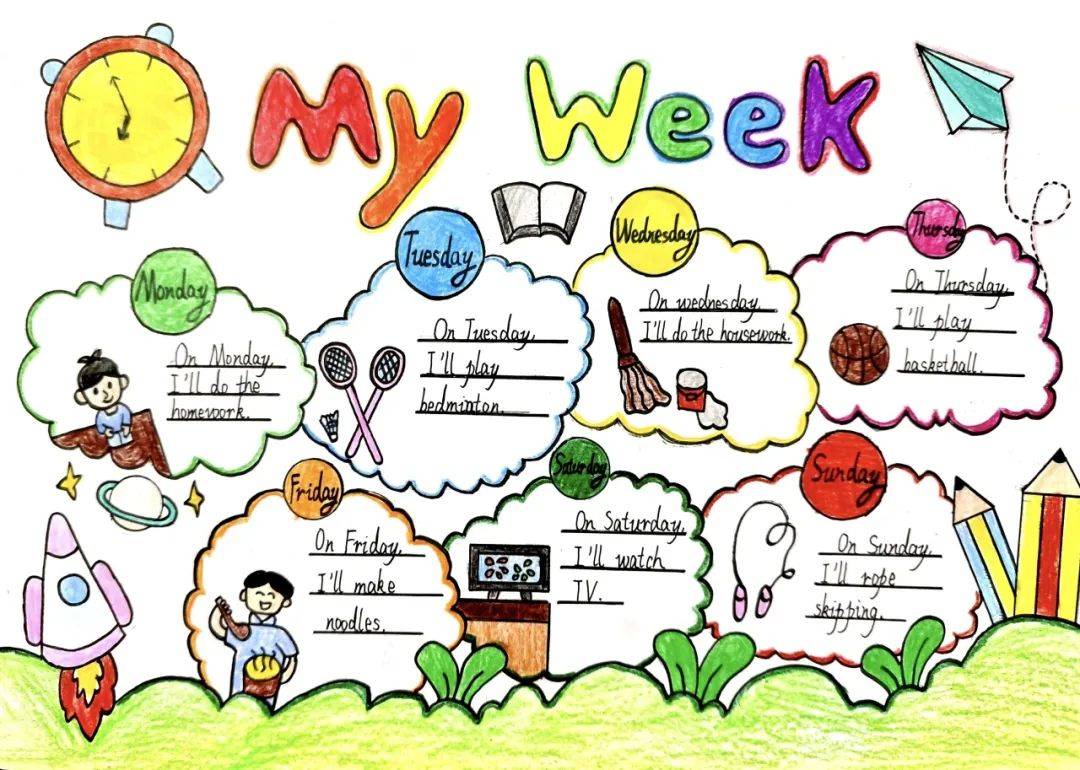 My Week
Monday
On Monday.
I'll do the
homework.
Tuesday
On Tuesday.
I'll play
bedminton.
Wednesday
On wednesday.
I'll do the housework.
Thursday
On Thursday.
I'll play
basketball.
Friday
On Friday.
I'll make
noodles.
Saturday
On Saturday.
I'll watch
TV.
Sunday
On Sunday.
I'll rope
skipping.